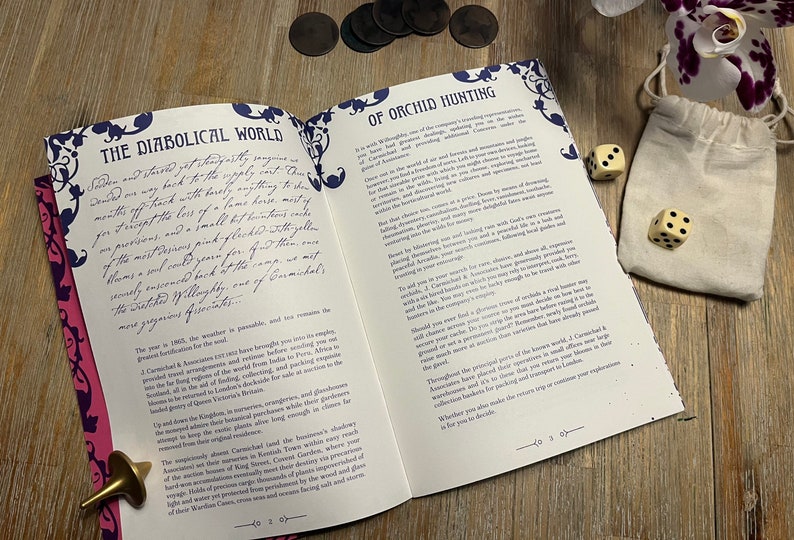 THE DIABOLICAL WORLD
Sodden and starved yet steadfastly sanguine we
wended our way back to the supply cart. Three
months off-track with barely anything to show
for it except the loss of a lame horse, most of
our provisions, and a small but bounteous cache
of the most desirous pink-flecked-with-yellow
blooms a soul could yearn for. And then, once
securely ensconced back at the camp, we met
the wretched Willoughby, one of Carmichael's
more gregarious Associates...
The year is 1865, the weather is passable, and tea remains the
greatest fortification for the soul.
J. Carmichael & Associates EST.1852 have brought you into its employ,
provided travel arrangements and retinue before sending you out
into the far flung regions of the world from India to Peru, Africa to
Scotland, all in the aid of finding, collecting, and packing exquisite
blooms to be returned to London's dockside for sale at auction to the
landed gentry of Queen Victoria's Britain.
Up and down the Kingdom, in nurseries, orangeries, and glasshouses
the moneyed admire their botanical purchases while their gardeners
attempt to keep the exotic plants alive long enough in climes far
removed from their original residence.
The suspiciously absent Carmichael (and the business's shadowy
Associates) set their nurseries in Kentish Town within easy reach
of the auction houses of King Street, Covent Garden, where your
hard-won accumulations eventually meet their destiny via precarious
voyage. Holds of precious cargo: thousands of plants impoverished of
light and water yet protected from perishment by the wood and glass
of their Wardian Cases, cross seas and oceans facing salt and storm.
020
OF ORCHID HUNTING
It is with Willoughby, one of the company's traveling representatives,
you have had greatest dealings, updating you on the wishes
of Carmichael and providing additional Concerns under the
guise of Assistance.
Once out in the world of air and forests and mountains and jungles
however, you find a freedom of sorts. Left to your own devices, baking
for that sizeable prize with which you might choose to voyage home
or remain in the wilds, living as you choose, replacing uncharted
territories, and discovering new cultures and specimens, not least
within the horticultural world.
But that choice too, comes at a price. Doom by means of drowning,
falling, dysentery, cannibalism, dueling, fever, vanishment, toothache,
rheumatism, pleurisy, and many more delightful fates await anyone
venturing into the wilds for money.
Beset by blistering sun and lashing rain with God's own creatures
placing themselves between you and a peaceful life in a lush and
peaceful Arcadia, your search continues, following local guides and
trusting in your entourage.
To aid you in your search for rare, elusive, and above all, expensive
orchids, J. Carmichael & Associates have generously provided you
with a six hired hands on which you may rely to interpret, cook, ferry,
and the like. You may even be lucky enough to travel with other
hunters in the company's employ.
Should you ever find a glorious trove of orchids a rival hunter may
still chance across your source so you must decide on how best to
secure your cache. Do you strip the area bare before razing it to the
ground or set a permanent guard? Remember, newly found orchids
raise much more at auction than varieties that have already passed
the gavel.
Throughout the principal ports of the known world, J. Carmichael &
Associates have placed their operatives in small offices near large
warehouses and it's to these that you return your blooms in their
collection baskets for packing and transport to London.
Whether you also make the return trip or continue your explorations
is for you to decide.
030